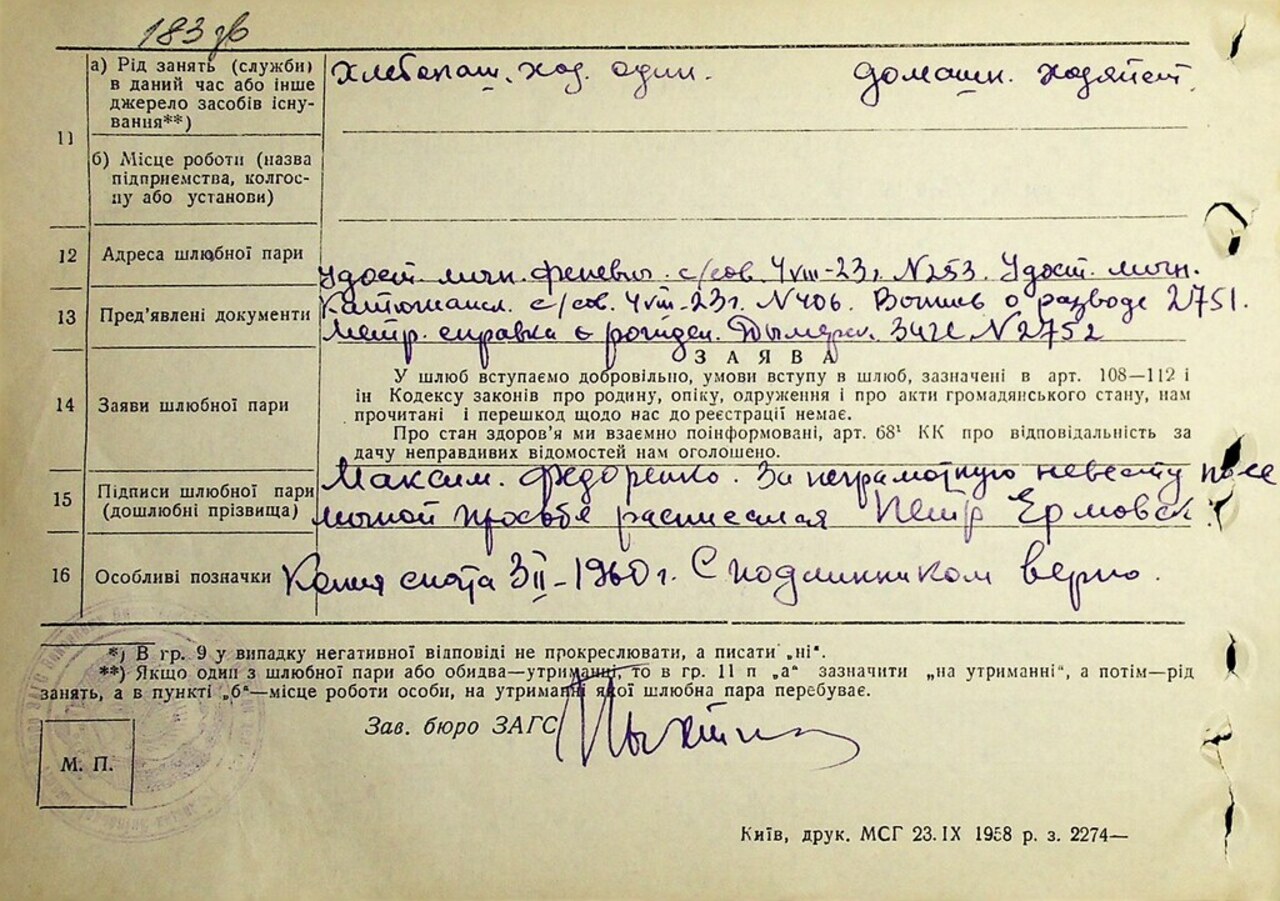 183 зв
11
а) Рід занять (служби) в даний час або інше джерело засобів існування**)
Хлебопаш. хоз. один.
домашн. хозяйст.
б) Місце роботи (назва підприємства, колгоспу або установи)
12
Адреса шлюбної пари
13
Пред'явлені документи
Удост. личн. с/сов. 4 VIII-23 г. N253. Удост. личн.
с/сов. 4 VIII-23 г. N406. Выпись о разводе 2751.
Метр. справка о рожден. Дымерск. ЗАГС N2752
14
Заяви шлюбної пари
ЗАЯВА
У шлюб вступаємо добровільно, умови вступу в шлюб, зазначені в арт. 108—112 і
ін Кодексу законів про родину, опіку, одруження і про акти громадянського стану, нам
прочитані і перешкод щодо нас до реєстрації немає.
Про стан здоров'я ми взаємно поінформовані, арт. 68¹ КК про відповідальність за
дачу неправдивих відомостей нам оголошено.
15
Підписи шлюбної пари
(дошлюбні прізвища)
Максим. Федоренко. За неграмотную невесту по ее
личной просьбе расписался Петр Ермовск.
16
Особливі позначки
Копия снята 3 II-1960 г. С подлинником верно.
*) В гр. 9 у випадку негативної відповіді не прокреслювати, а писати „ні".
**) Якщо один з шлюбної пари або обидва—утриманні, то в гр. 11 п „а" зазначити „на утриманні", а потім—рід
занять, а в пункті „б"—місце роботи особи, на утриманні якої шлюбна пара перебуває.
Зав. бюро ЗАГС
М. П.
Київ, друк. МСГ 23.IX 1958 р. з. 2274—